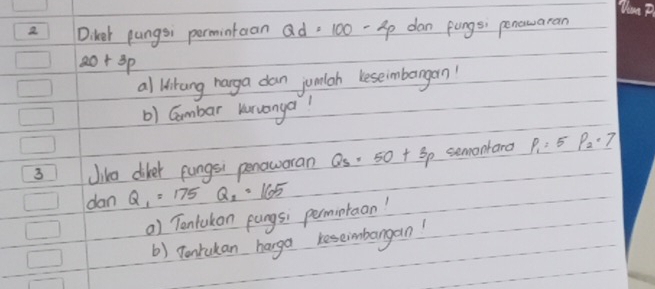 2 Diket fungsi permintaan Qd = 100 - 2p dan fungsi penawaran
20 + 3p
a) Hitung harga dan jumlah keseimbangan!
b) Gambar kurvanya!
3 Jika diket fungsi penawaran Qs = 50 + 3p semantara P₁ = 5 P₂ = 7
dan Q₁ = 175 Q₂ = 165
a) Tentukan fungsi permintaan!
b) Tentukan harga keseimbangan!